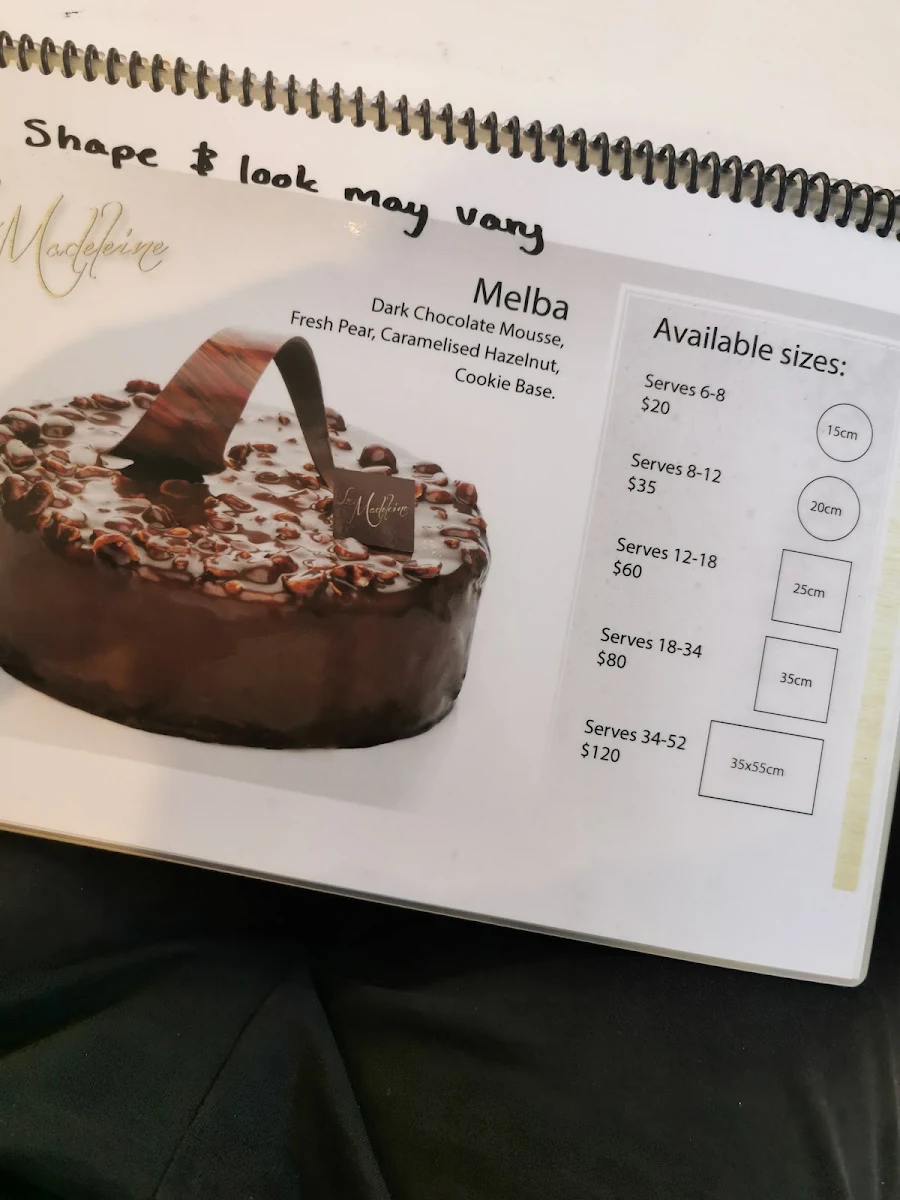 Shape & look may vary
Madeleine
Melba
Dark Chocolate Mousse,
Fresh Pear, Caramelised Hazelnut,
Cookie Base.
La Madeleine
Available sizes:
Serves 6-8
$20
15cm
Serves 8-12
$35
20cm
Serves 12-18
$60
25cm
Serves 18-34
$80
35cm
Serves 34-52
$120
35x55cm